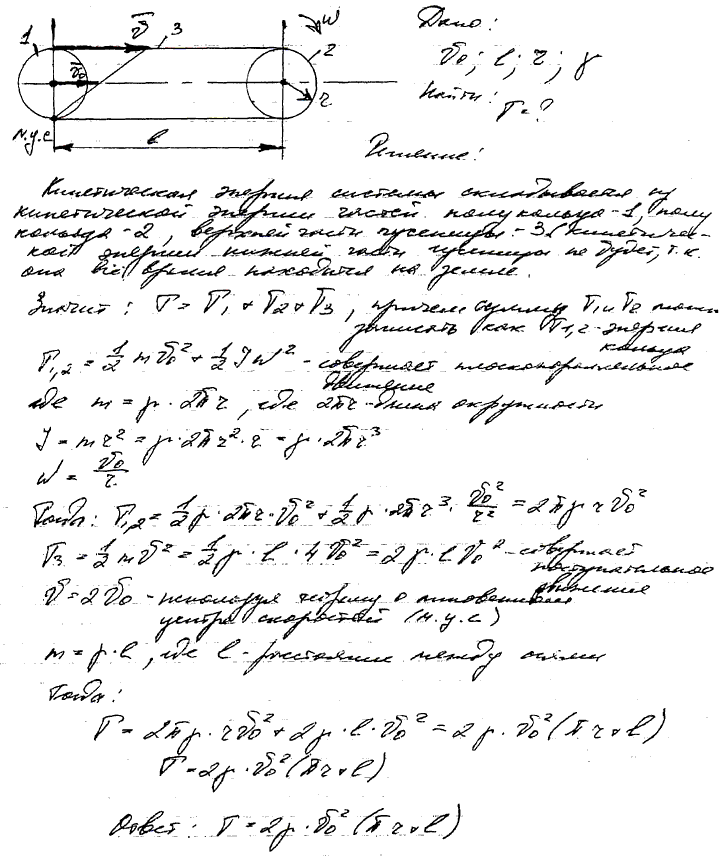 1
v̄
3
ω
2
v̄₀
r
м.ц.с
l
Дано:
v₀; l; r; γ
Найти:
T = ?
Решение:
Кинетическая энергия системы складывается из
кинетической энергии частей полукольца - 1, полу
кольца - 2, верхней части гусеницы - 3. (Кинетичес-
кой энергии нижней части гусеницы не будет, т.к.
она всё время находится на земле.
Значит: T = T₁ + T₂ + T₃, причем сумму T₁ и T₂ можно
записать как T₁,₂ - энергия
кольца
T₁,₂ = 1/2 m v₀² + 1/2 J ω² - совершает плоскопараллельное
движение
где m = γ · 2πr, где 2πr - длина окружности
J = m r² = γ · 2πr² · r = γ · 2πr³
ω = v₀/r
Тогда: T₁,₂ = 1/2 γ · 2πr · v₀² + 1/2 γ · 2πr³ · v₀²/r² = 2πγ r v₀²
T₃ = 1/2 m v² = 1/2 γ · l · 4v₀² = 2γ · l v₀² - совершает
поступательное
движение
v = 2v₀ - используя теорему о мгновенном
центре скоростей (м.ц.с)
m = γ · l, где l - расстояние между осями
Тогда:
T = 2πγ · r v₀² + 2γ · l · v₀² = 2γ · v₀² (πr + l)
T = 2γ · v₀² (πr + l)
Ответ: T = 2γ · v₀² (πr + l)